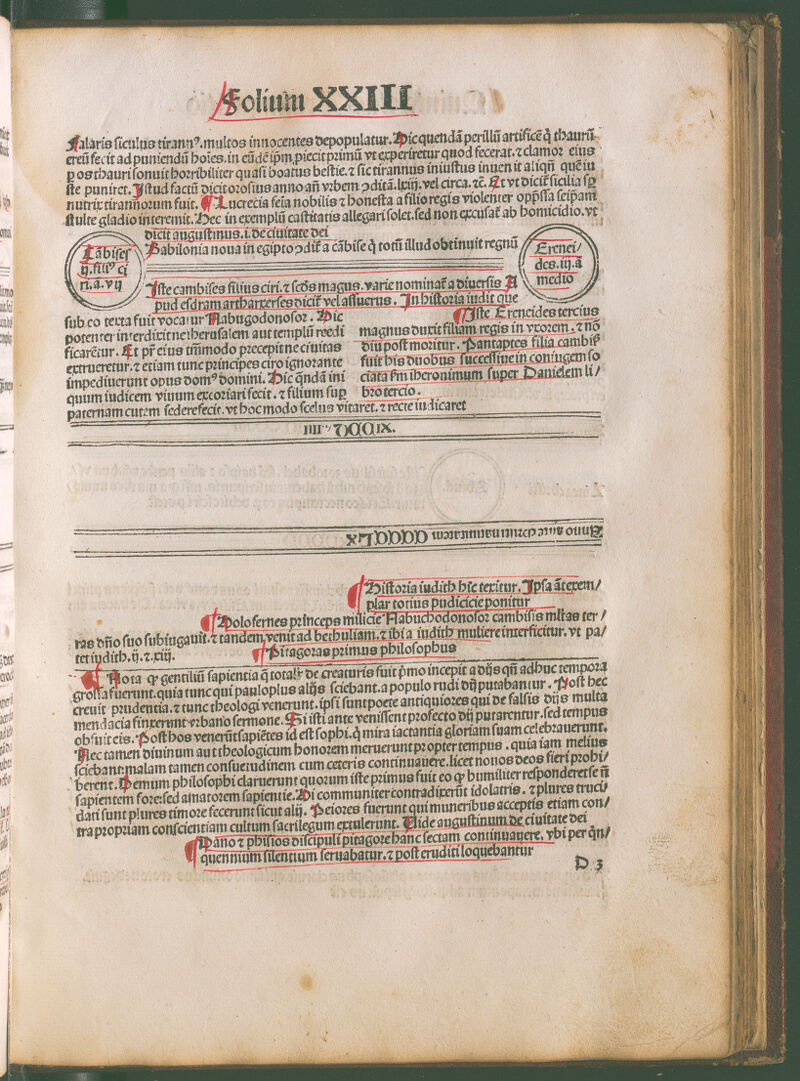 Folium XXIII
Falaris siculus tirannꝰ.multos innocentes depopulatur. Hic quendā perillū artificē q̄ thaurū
ereū fecit ad puniendū hoīes.in eūdē ip̄m piecit primū vt experiretur quod fecerat.⁊ clamor eius
ꝑ os thauri sonuit horribiliter quasi boatus bestie.⁊ sic tirannus iniustus inuenit aliqn̄ quē iu
ste puniret. Istud factū dicit orosius anno an̄ vrbem ꝯditā.lxiij.vel circa.⁊c̄. Et vt dicit̄ sicilia sꝑ
nutrix tirannorum fuit. Lucrecia feīa nobilis ⁊ honesta a filio regis violenter opp̄ssa seip̄am
stulte gladio interemit. Hec in exemplū castitatis allegari solet.sed non excusat̄ ab homicidio.vt
dicit augustinus.i.de ciuitate dei
Babilonia noua in egipto ꝯdit̄ a cābise q̄ totū illud obtinuit regnū
Cābises
ij.filiꝰ ci
ri.a.vij
Erenei/
des.iij.a
medio
Iste cambises filius ciri.⁊ scōs magus.varie nominat̄ a diuersis A
pud esdram artharxerses dicit̄ vel assuerus. In historia iudit que
sub eo texta fuit vocatur Nabugodonosor. Hic
potenter interdixit ne iherusalem aut templū reedi
ficarētur. Et pr̄ eius tm̄modo precepit ne ciuitas
extrueretur.⁊ etiam tunc principes ciro ignorante
impediuerunt opus domꝰ domini. Hic qn̄dā ini
quum iudicem viuum excoriari fecit.⁊ filium suꝑ
paternam cutem sedere fecit.vt hoc modo scelus vitaret.⁊ recte iudicaret
Iste Ereneides tercius
magnus duxit filiam regis in vxorem.⁊ nō
diū post moritur. Pantaptes filia cambisꝭ
fuit his duobus successiue in coniugem so
ciata sm̄ iheronimum super Danielem li/
bro tercio.
Anno ante cristi natiuitatem
Historia iudith hic texitur. Ipsa ātē exem/
plar totius pudicicie ponitur
Holofernes princeps milicie Nabuchodonosor cambisis ml̄tas ter/
ras dn̄o suo subiugauit.⁊ tandem venit ad bethuliam.⁊ ibi a iudith muliere interficitur.vt pa/
tet iudith.ij.⁊.xiij. Pitagoras primus philosophus
Nota ꝙ gentiliū sapientia q̄ totalr̄ de creaturis fuit p̄mo incepit a dijs qn̄ adhuc tempora
grossa fuerunt.quia tunc qui pauloplus alijs sciebant.a populo rudi dij putabantur. Post hec
creuit prudentia.⁊ tunc theologi venerunt.ipsi sunt poete antiquiores qui de falsis dijs multa
mendacia finxerunt vrbano sermone. Si isti ante venissent profecto dij putarentur.sed tempus
obfuit eis. Post hos venerūt sapiētes id est sophi.q̄ mira iactantia gloriam suam celebrauerunt.
Nec tamen diuinum aut theologicum honorem meruerunt propter tempus.quia iam melius
sciebant:malam tamen consuetudinem cum ceteris continuauere.licet nouos deos fieri prohi/
berent. Demum philosophi claruerunt quorum iste primus fuit eo ꝙ humiliter respōderet se nō
sapientem fore:sed amatorem sapientie. Hi communiter contradixerūt idolatris.⁊ plures truci/
dati sunt plures timore fecerunt sicut alij. Peiores fuerunt qui muneribus acceptis etiam con/
tra propriam conscientiam cultum sacrilegum extulerunt. Vide augustinum de ciuitate dei
Dano ⁊ phisios discipuli pitagore hanc sectam continuauere.vbi per q̄n/
quennium silentium seruabatur.⁊ post eruditi loquebantur
D 3